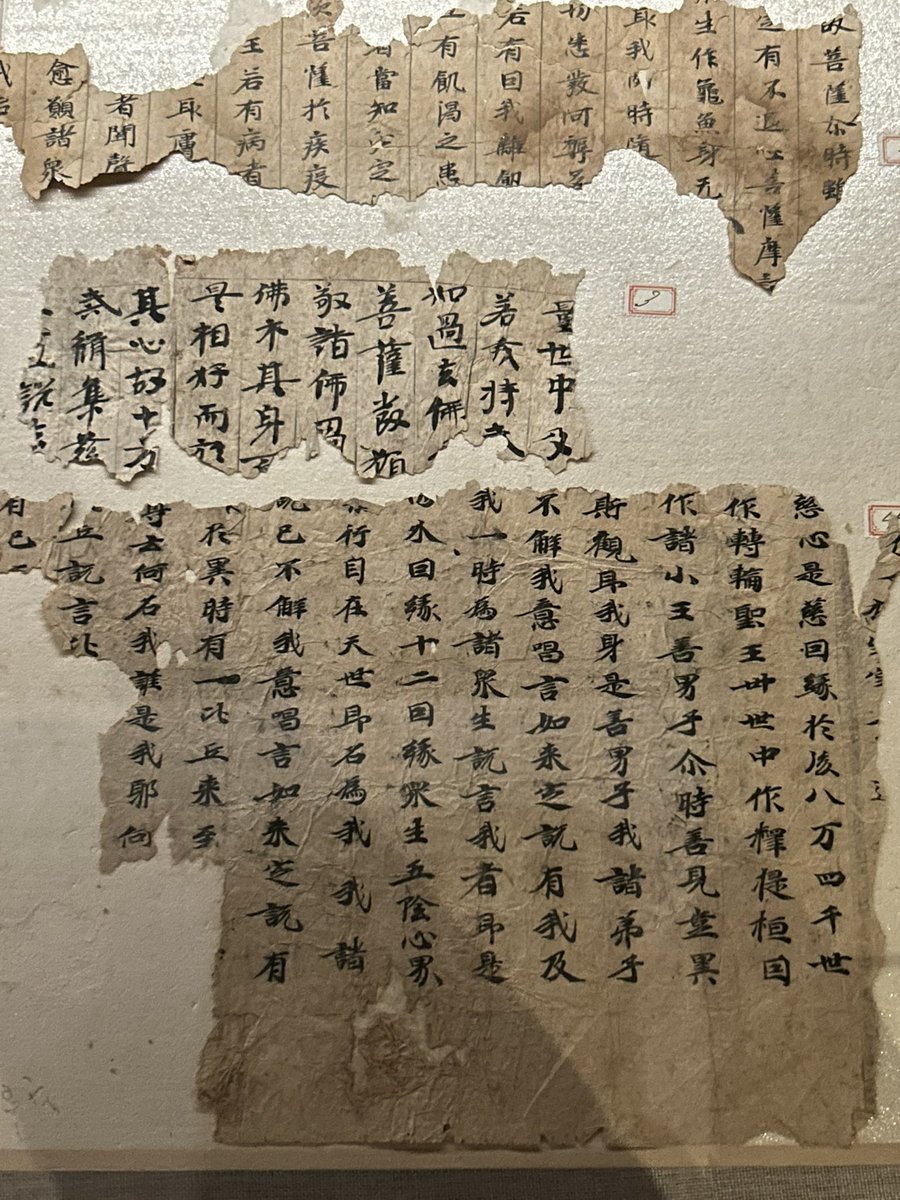 故菩薩尒時雖
定有不退心菩薩摩
生作龜魚身无
即我尒時隨
切悉發阿耨多
若有因我離飢
有飢渴之患
當知必定
菩薩於疾疫
王若有病者
即膚
者聞聲
愈願諸眾
量世中又
若
如過去佛
菩薩發願
敬諸佛因
佛於其身
是相好而
其心故十方
集
說言
慈心是慈因緣於後八万四千世
作轉輪聖王卅世中作釋提桓因
作諸小王善男子尒時善見豈異
斯觀即我身是善男子我諸弟子
不解我意唱言如来定說有我及
我一時為諸眾生說言我者即是
外因緣十二因緣眾生五陰心界
行自在天世即名為我 我諸
說已不解我意唱言如来定說有
於異時有一比丘来至
尊云何名我誰是我耶何
丘說言比
有已